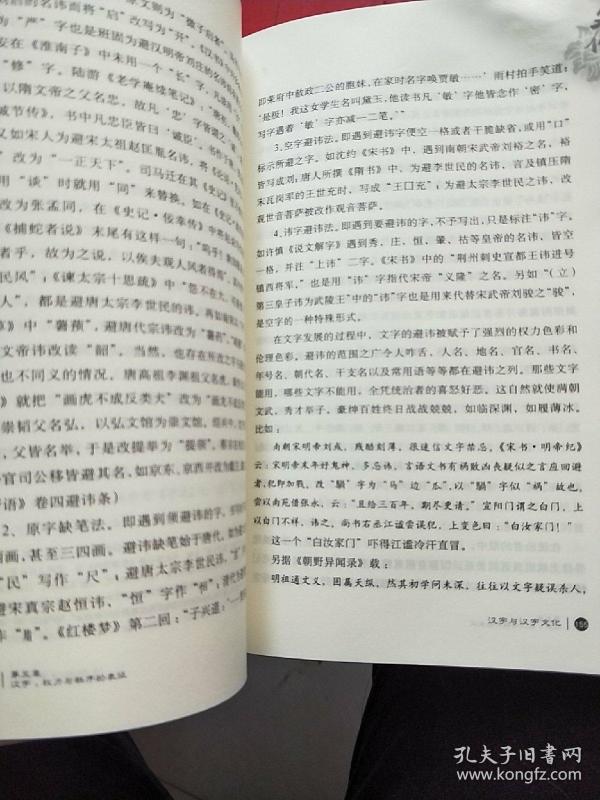 启的名讳而将"启"改写为"开",《汉
为"严"字也是班固为避汉明帝刘庄的名
安在《淮南子》中未用一个"长"字,凡
"修"字。陆游《老学庵续笔记》:
以隋文帝之父名忠,故凡"忠"字皆
减节传》,书中凡忠臣皆曰"诚臣",
又如宋人为避宋太祖赵匡胤名讳,
改为"一正天下"。司马迁在其《史记》
用"谈"时就用"同"来替换。如在《史记
改为张孟同,在《史记·佞幸传》中
《捕蛇者说》末尾有这样一句:"呜乎!
者乎,故为之说,以俟夫观人风者得焉
民风";《谏太宗十思疏》中"怨不在大,
人",都是避唐太宗李世民的讳,再如
》中"薯蓣",避唐代宗讳改为"薯药",
文帝讳改读"韶"。当然,也存在所改之字
也不同义的情况,唐高祖李渊祖父名虎,
》就把"画虎不成反类犬"改为"画龙不成
崇韬父名弘,以弘文馆为崇文馆。绍兴
,父皆名举,于是改提举为"提领"。
官司公移皆避其名,如京东、京西并改为
语》卷四避讳条)
2、原字缺笔法。即遇到须避讳的字,
画,甚至三四画。避讳缺笔始于唐代,如
"民"写作"尸";避唐太宗李世民讳,
宋真宗赵恒讳,"恒"字作"
。《红楼梦》第二回:"子兴道:
第五章
汉字:权力与秩序的表征
即荣府中赦政二公的胞妹,在家时名字唤贾敏……'雨村拍手笑道:
'是极!我这女学生名叫黛玉,他读书凡'敏'字他皆念作'密'字,
写字遇着'敏'字亦减一二笔。'"
3.空字避讳法。即遇到避讳字便空一格或者干脆缺省,或用"口"
标示所避之字。如沈约《宋书》中,为避南朝宋武帝刘裕之名,裕
皆写成刘;唐人所撰《隋书》中、为避李世民的名讳,言及镇压隋
末瓦岗军的王世充时,写成"王囗充";为避太宗李世民之讳,改
观世音菩萨被改作观音菩萨。
4.讳字避讳法。即遇到要避讳的字,不予写出,只是标注"讳"字。
如许慎《说文解字》遇到秀、庄、恒、肇、祜等皇帝的名讳,皆空
一格,并注"上讳"二字。《宋书》中的"荆州刺史宜都王讳进号
镇西将军,"也是用"讳"字指代宋帝"义隆"之名。另如"(立)
第三皇子讳为武陵王"中的"讳"字也是用来代替宋武帝刘骏之"骏",
是空字的一种特殊形式。
在文字发展的过程中,文字的避讳被赋予了强烈的权力色彩和
伦理色彩,避讳的范围之广令人咋舌,人名、地名、官名、书名、
年号名、朝代名、干支名以及常用语等等都在避讳之列。那些文字
能用,哪些文字不能用,全凭统治者的喜怒好恶。这自然就使满朝
文武,秀才举子,豪绅百姓终日战战兢兢,如临深渊,如履薄冰。
比如:
南朝宋明帝刘彧,残酷刻薄,很迷信文字禁忌,《宋书·明帝纪》
云:宋明帝末年好鬼神,多忌讳,言语文书有祸败凶丧疑似之言应回避
者,犯即加戮,改"騧"字为"马"边"瓜",以"騧"字似"祸"故也,
尝以南苑借张永,云:"且给三百年,期尽更请。"宣阳门谓之白门,上
以白门不祥,讳之,尚书右丞江谧尝误犯,上变色曰:"白汝家门!"
这一个"白汝家门"吓得江谧冷汗直冒。
另据《朝野异闻录》载:
明祖通文义,固属天纵,然其初学问未深,往往以文字疑误杀人,
汉字与汉字文化
155
孔夫子旧书网
www.kongfz.com